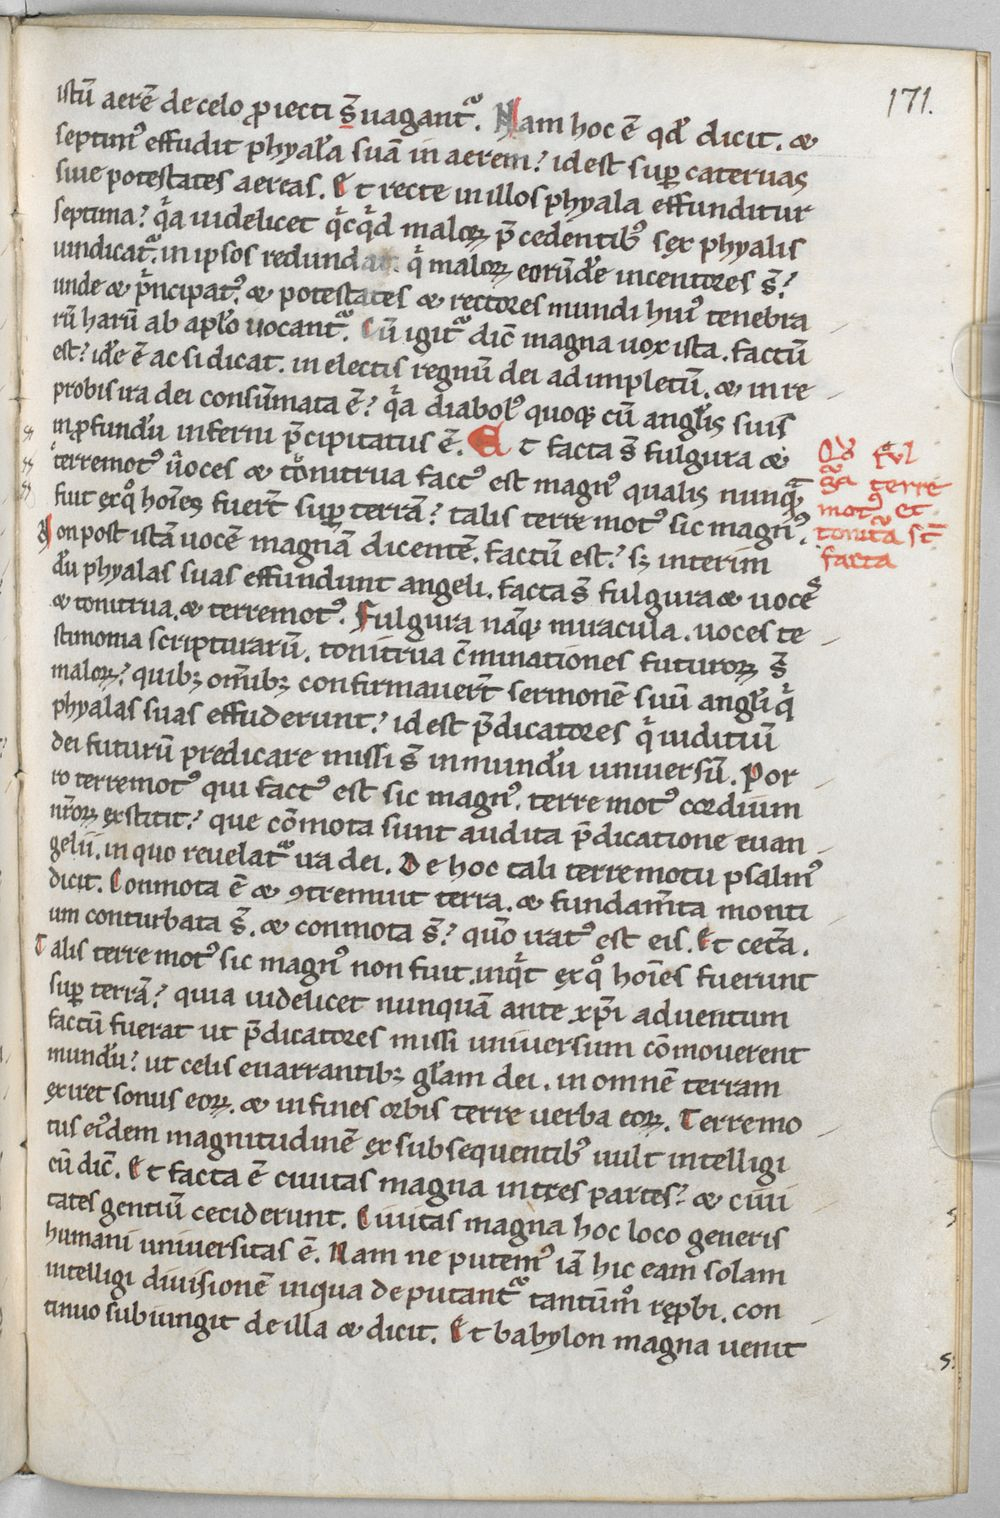 171.
istū aerē de celo ꝓiecti s̄ uagantᷓ. Nam hoc ē qd̓ dicit. ⁊
septim᾽ effudit phyal̓a suā in aerem? id est suꝑ cateruas
siue potestates aereas. Et recte in illos phyala effunditur
septima? qͣa uidelicet qͥcqͥd maloꝝ p̄cedentib᾽ sex phyalis
uindicatᷓ. in ipsos redundat qͥ maloꝝ eorūd̓e incentores s̄?
unde ⁊ pͥncipat᾽ ⁊ potestates ⁊ rectores mundi hui᾽ tenebra
rū harū ab apl̓o uocantᷓ. Cū igitᷓ dic̄ magna uox ista. factū
est? id̓e ē ac si dicat. in electis regnū dei adimpletū. ⁊ in re
probis ira dei consūmata ē? qͣa diabol᾽ quoqꝫ cū angl̓is suis
in ꝓfund̓u inferni p̄cipitatus ē. Et facta s̄ fulgura ⁊
terremot᾽ ⁊ uoces ⁊ tonitrua fact᾽ est magn᾽ qualis nunqͣ
fuit ex qͦ hōīes fuer̄t suꝑ terrā? talis terremot᾽ sic magn᾽.
Qd̓ ful
gͣa terre
mot᾽ et
tonitͣa st̄
facta
Non post istā uocē magnā dicentē. factū est? sꝫ interim
d̓u phyalas suas effundunt angeli. facta s̄ fulgura ⁊ uoces
⁊ tonitrua. ⁊ terremot᾽. Fulgura nāqꝫ miracula. uoces te
stimonia scripturarū. tonitrua c̄minationes futuroꝝ s̄
maloꝝ? quibꝫ om̄ibꝫ confirmauer̄t sermonē suū angl̓i qͥ
phyalas suas effuderunt? id est p̄dicatores qͥ iuditiū
dei futurū predicare missi s̄ in mund̓u uniuersū. Por
ro terremot᾽ qui fact᾽ est sic magn᾽. terremot᾽ cordium
nr̄oꝝ exstitit? que cōmota sunt audita p̄dicatione euan
gelii. in quo reuelatᷓ ira dei. De hoc tali terremotu psalm᾽
dicit. Conmota ē ⁊ ꝯtremuit terra. ⁊ fundam̄ta monti
um conturbata s̄. ⁊ conmota s̄? qūo irat᾽ est eis. Et cet̄a.
Talis terremot᾽ sic magn᾽ non fuit. inqͥt ex qͦ hōīes fuerunt
suꝑ terrā? quia uidelicet nunquā ante xp̄i aduentum
factū fuerat ut p̄dicatores missi uniuersum cōmouerent
mund̓u? ut celis enarrantibꝫ gl̓am dei. in omnē terram
exiret sonus eoꝝ. ⁊ in fines orbis terre uerba eoꝝ. Terremo
tus ei᾽dem magnitudinē ex subsequentib᾽ uult intelligi
cū dic̄. Et facta ē ciuitas magna in tres partes? ⁊ ciui
tates gentiū ceciderunt. Ciuitas magna hoc loco generis
humani uniuersitas ē. Nam ne putem᾽ iā hic eam solam
intelligi diuisionē in qua deputantᷓ tantūmͦ reꝓbi. con
tinuo subiungit de illa ⁊ dicit. Et babylon magna uenit